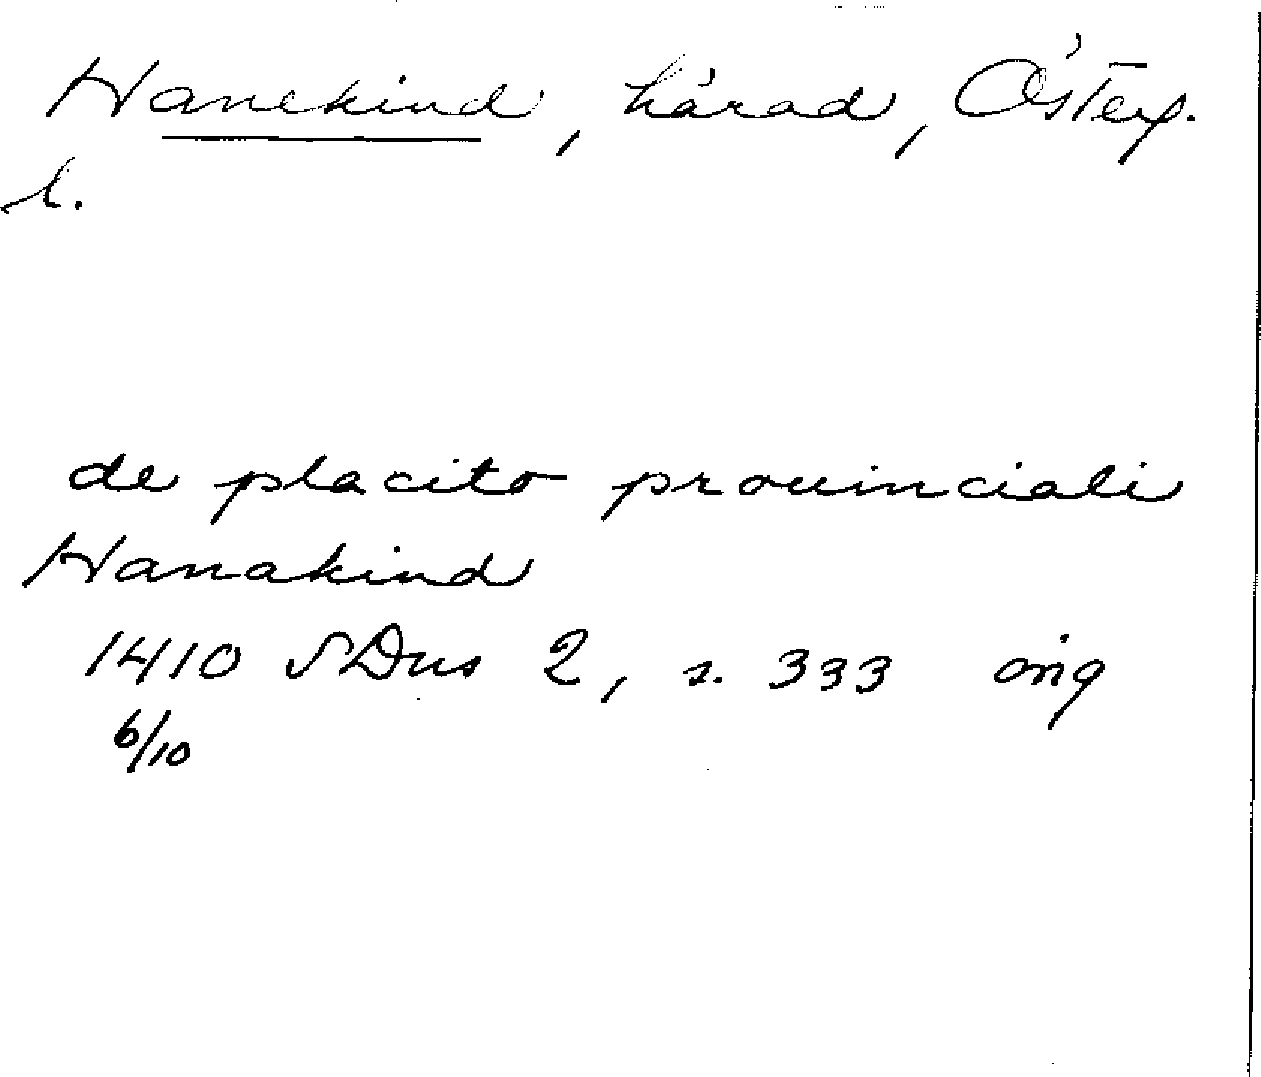 Hanekind, härad, Österg.
l.
de placito prouinciali
Hanakind
1410 SDns 2, s. 333 orig
6/10